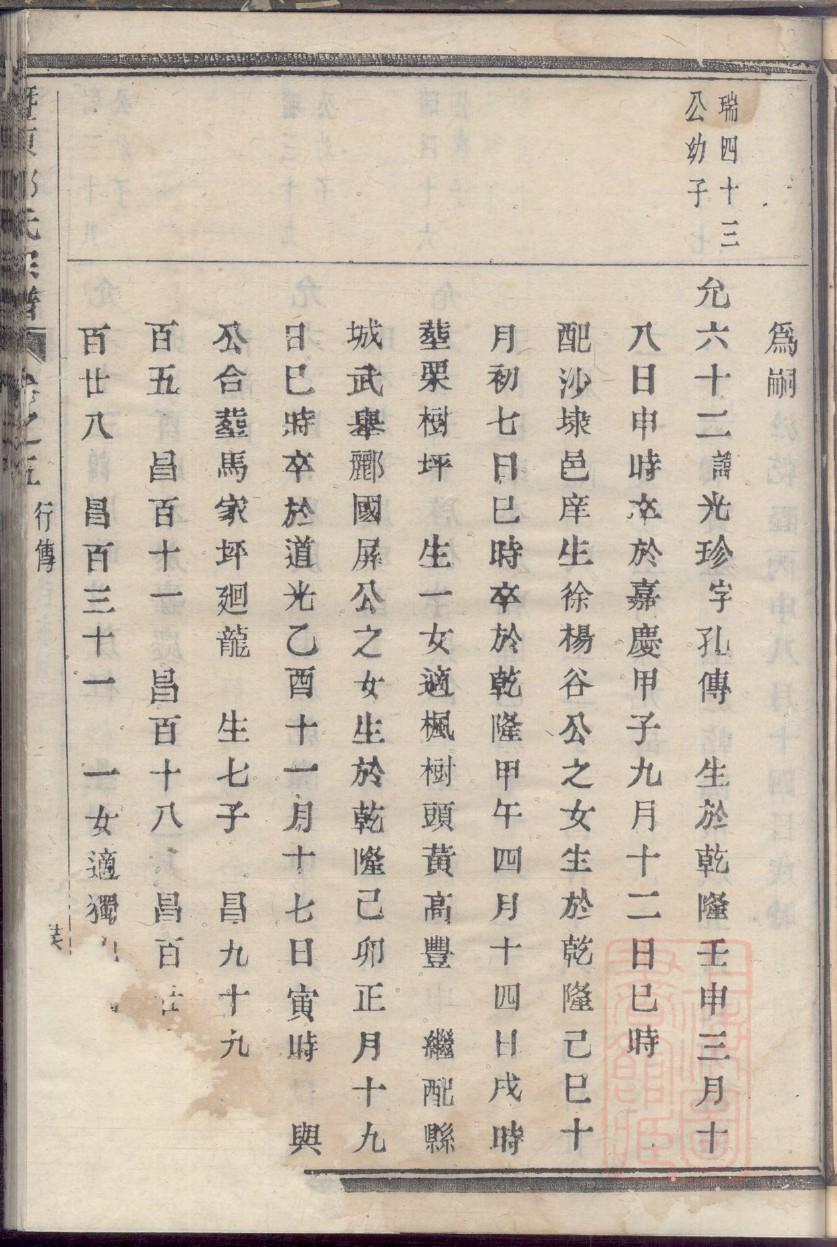 瑞四十三
公幼子
爲嗣
允六十二諱光珍字孔傳 生於乾隆壬申三月十
八日申時卒於嘉慶甲子九月十二日巳時
配沙埭邑庠生徐楊谷公之女生於乾隆己巳十
月初七日巳時卒於乾隆甲午四月十四日戌時
塟栗樹坪 生一女適楓樹頭黃高豐 繼配縣
城武舉酈國屏公之女生於乾隆己卯正月十九
日巳時卒於道光乙酉十一月十七日寅時 與
公合塟馬家坪廻龍 生七子 昌九十九
百五 昌百十一 昌百十八 昌百廿
百廿八 昌百三十一 一女適獨
氏宗譜 卷之五 行傳